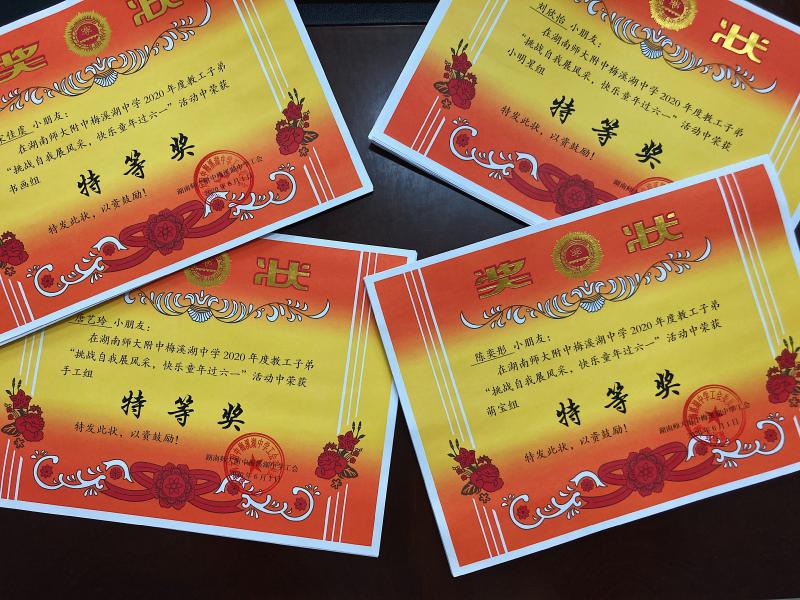 奖
佳虔 小朋友：
在湖南师大附中梅溪湖中学2020年度教工子弟
“挑战自我展风采，快乐童年过六一”活动中荣获
书画组
特等奖
特发此状，以资鼓励！
湖南师大附中梅溪湖中学工会
状
刘欣怡 小朋友：
在湖南师大附中梅溪湖中学2020年度教工子弟
“挑战自我展风采，快乐童年过六一”活动中荣获
小明星组
特等奖
特发此状，以资鼓励！
状
艺玲 小朋友：
在湖南师大附中梅溪湖中学2020年度教工子弟
“挑战自我展风采，快乐童年过六一”活动中荣获
手工组
特等奖
特发此状，以资鼓励！
湖南师大附中梅溪湖中学工会
奖状
陈奕彤 小朋友：
在湖南师大附中梅溪湖中学2020年度教工子弟
“挑战自我展风采，快乐童年过六一”活动中荣获
萌宝组
特等奖
特发此状，以资鼓励！
湖南师大附中梅溪湖中学工会